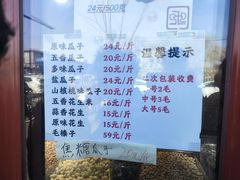 24元/500克
原味瓜子 24元/斤
五香瓜子 24元/斤
多味瓜子 20元/斤
盐瓜子 24元/斤
山核桃味瓜子 20元/斤
五香花生米 16元/斤
蒜香花生 15元/斤
原味花生 15元/斤
毛榛子 59元/斤
温馨提示
二次包装收费
小号2毛
中号3毛
大号5毛
焦糖瓜子